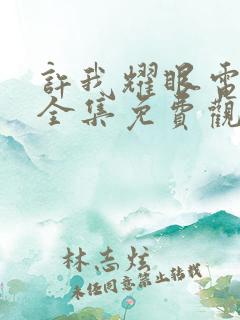 許我耀眼電
全集免費觀
林志炫
未经同意禁止转载